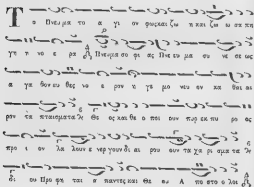 Το Πνευ μα το α γι ον φως και ζω η και ζω σα πη
γη η νο ε ρα Πνευμα σο φι ας Πνευ μα συ νε σε ως
α γα θον ευ θες νο ε ρον η γε μο νευ ον κα θαι
ρον τα πταισματα Θε ος και θε ο ποι ουν πυρ εκ πυ ρος
προ ι ον λα λουν ε νερ γουν δι αι ρουν τα χα ρι σμα τα
δι ου Προ φη ται α παντες και Θε ου Α πο στο λοι